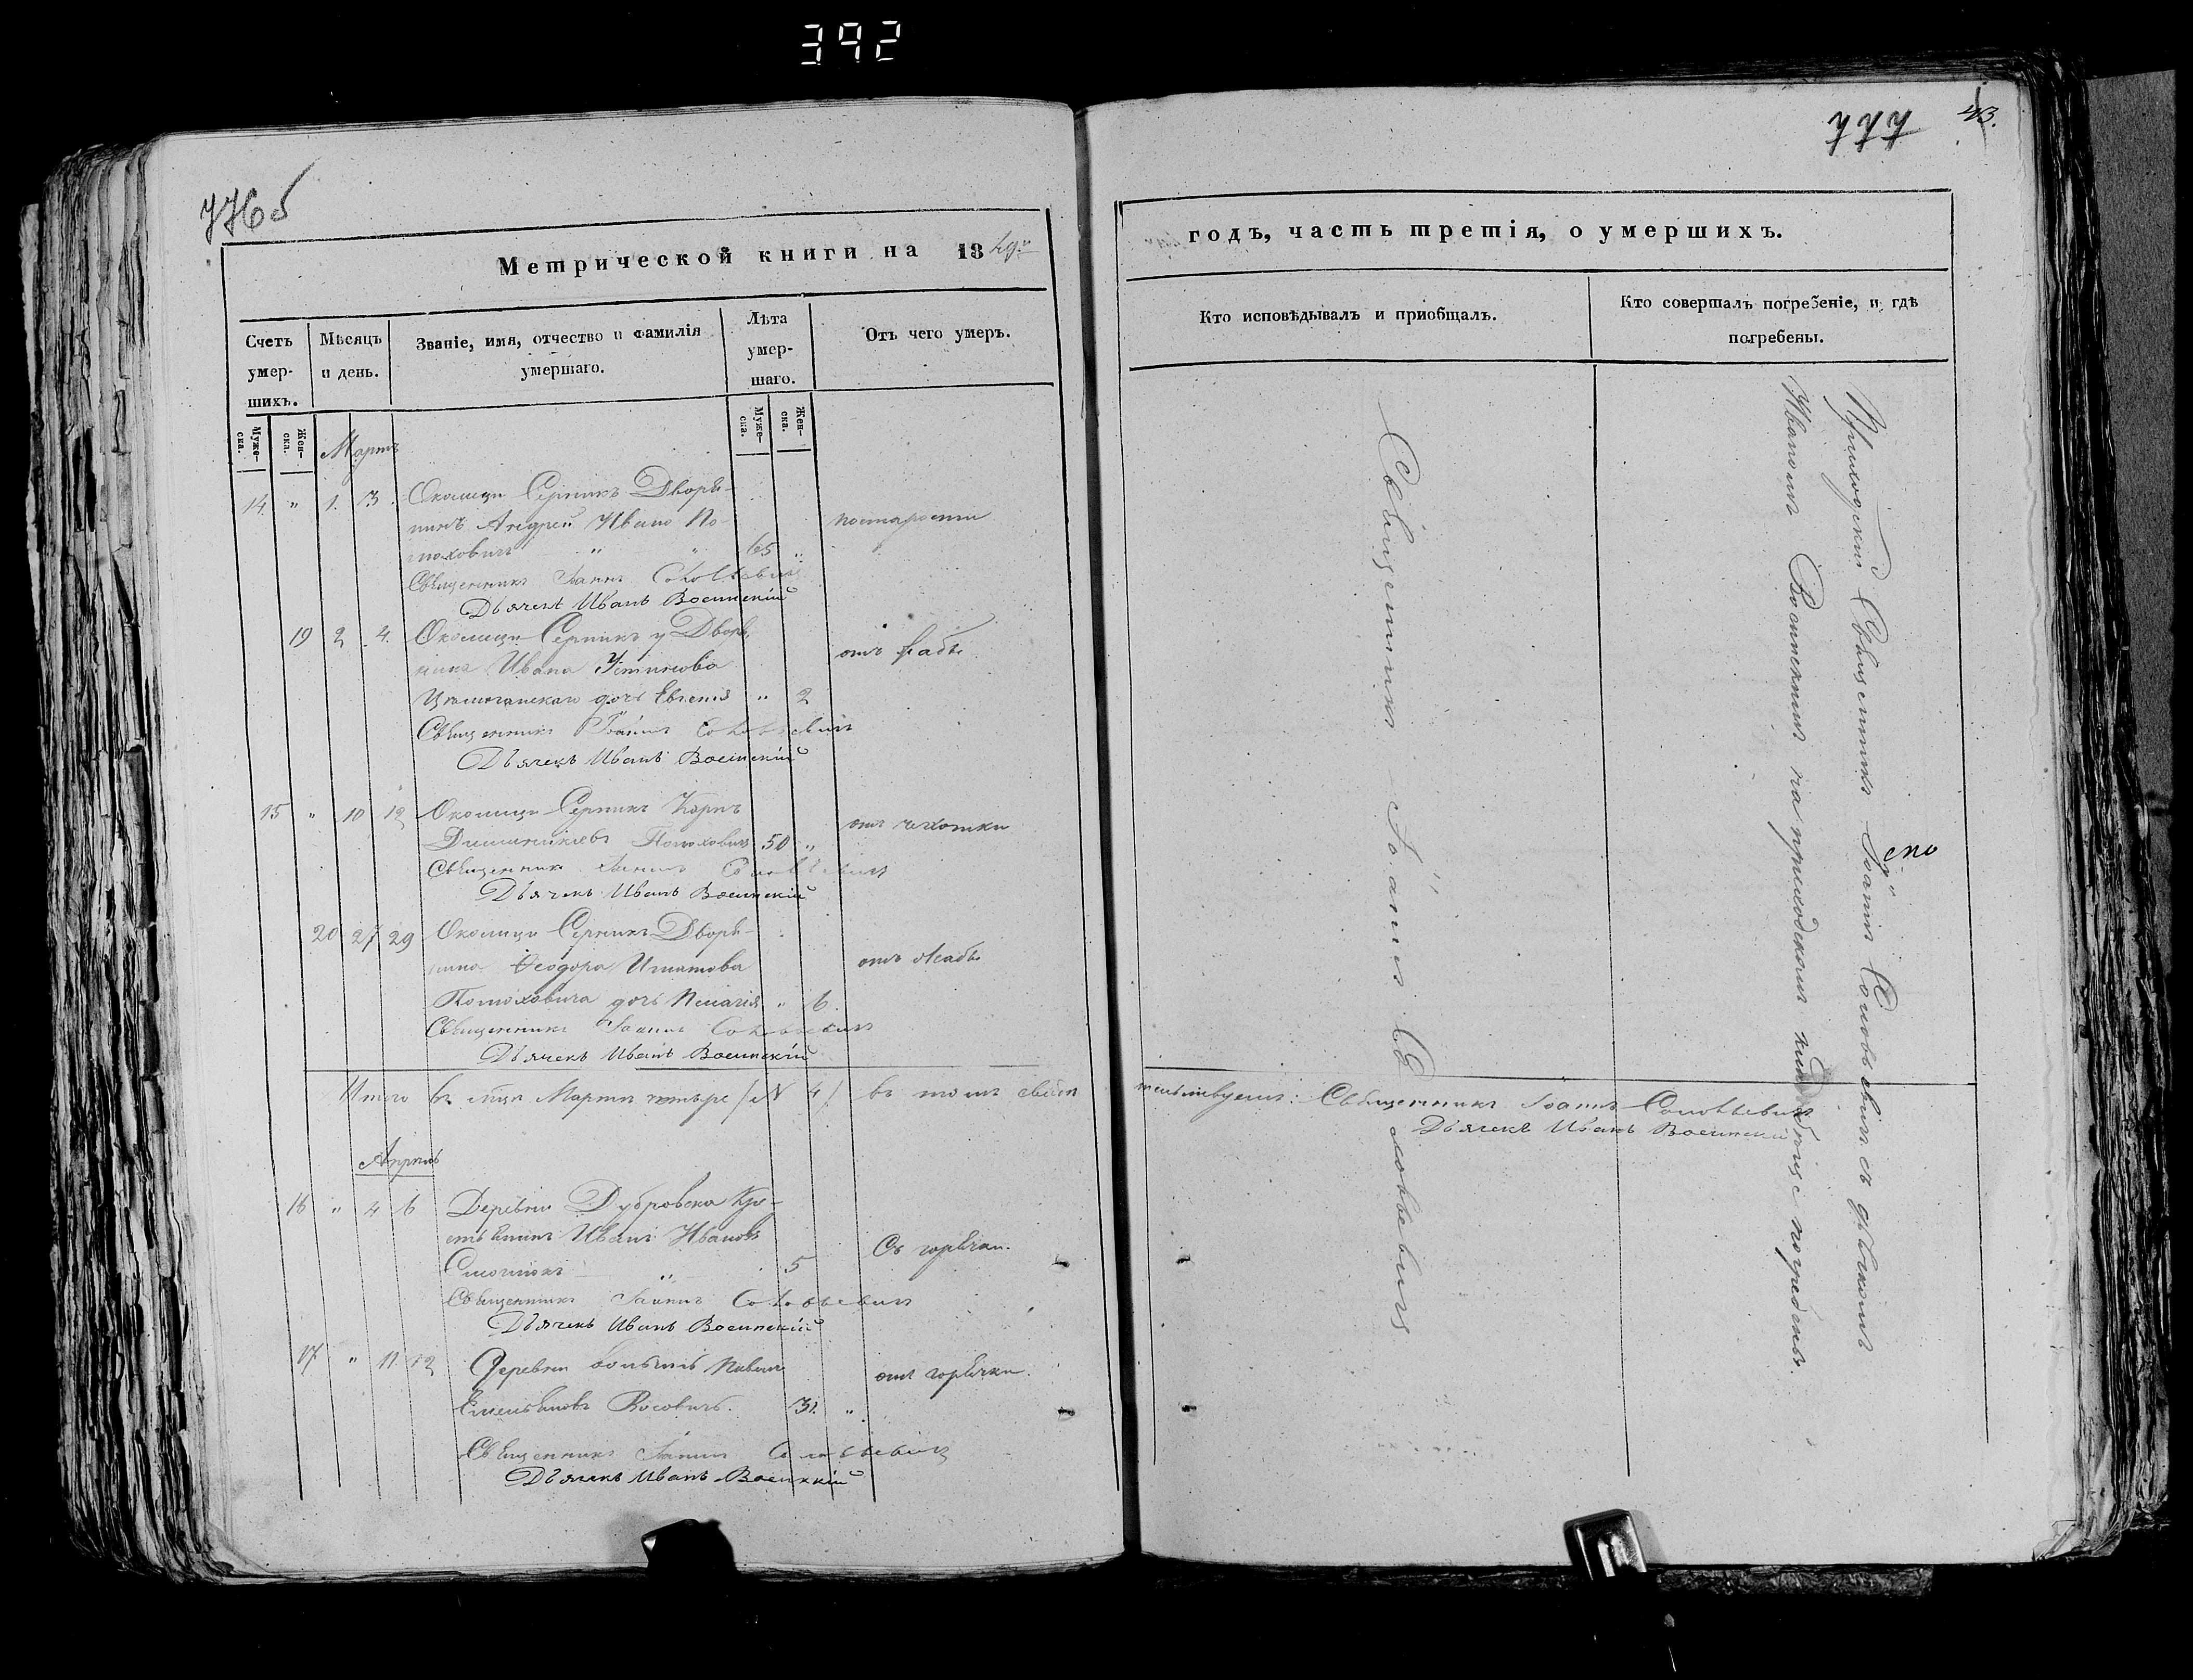 392
776б
Метрической книги на 1849.
Счетъ умер-шихъ.
Муже-ска.
Жен-ска.
Мѣсяцъ и день.
Званіе, имя, отчество и фамилія умершаго.
Лѣта умер-шаго.
Муже-ска.
Жен-ска.
Отъ чего умеръ.
Мартъ
14 " 1. 3. Околицы Серникъ Дворя-
нинъ Андрей Ивано По-
тоховичъ " " 65 "
постарости
Священникъ Іоаннъ Соловьевичъ
Дьячекъ Иванъ Восинскій
19 2 4. Околицы Серникъ у Дворя
нина Ивана Устинова
дочь Евгенія " 2
отъ жабы
Священникъ Іоаннъ Соловьевичъ
Дьячекъ Иванъ Восинскій
15 " 10 12 Околицы Серникъ Карпъ
Потоховичъ 50 "
отъ чехотки
Священникъ Іоаннъ Соловьевичъ
Дьячекъ Иванъ Восинскій
20 27 29 Околицы Серникъ Дворя-
нина Ѳеодора Игнатова
Потоховича дочь Пелагія " 6.
отъ жабы
Священникъ Іоаннъ Соловьевичъ
Дьячекъ Иванъ Восинскій
Итого въ мцѣ Мартѣ четыре /№ 4/ въ томъ свидѣ
Апрель
16 " 4 6 Деревни Дубровска Кре-
стьянинъ Иванъ Ивановъ
" 5
Съ горячки.
Священникъ Іоаннъ Соловьевичъ
Дьячекъ Иванъ Восинскій
17 " 11 12 Деревни
Емельяновъ Восовичъ. 31. "
отъ горячки.
Священникъ Іоаннъ Соловьевичъ
Дьячекъ Иванъ Восинскій
777
43.
годъ, часть третія, о умершихъ.
Кто исповѣдывалъ и пріобщалъ.
Кто совершалъ погребеніе, и гдѣ погребены.
Священникъ Іоаннъ Соловьевичъ
Приходскій Священникъ Іоаннъ Соловьевичъ съ дьячкомъ
Иваномъ Восинскимъ на приходскомъ кладбищѣ погребенъ.
тельствуемъ: Священникъ Іоаннъ Соловьевичъ
Дьячекъ Иванъ Восинскій